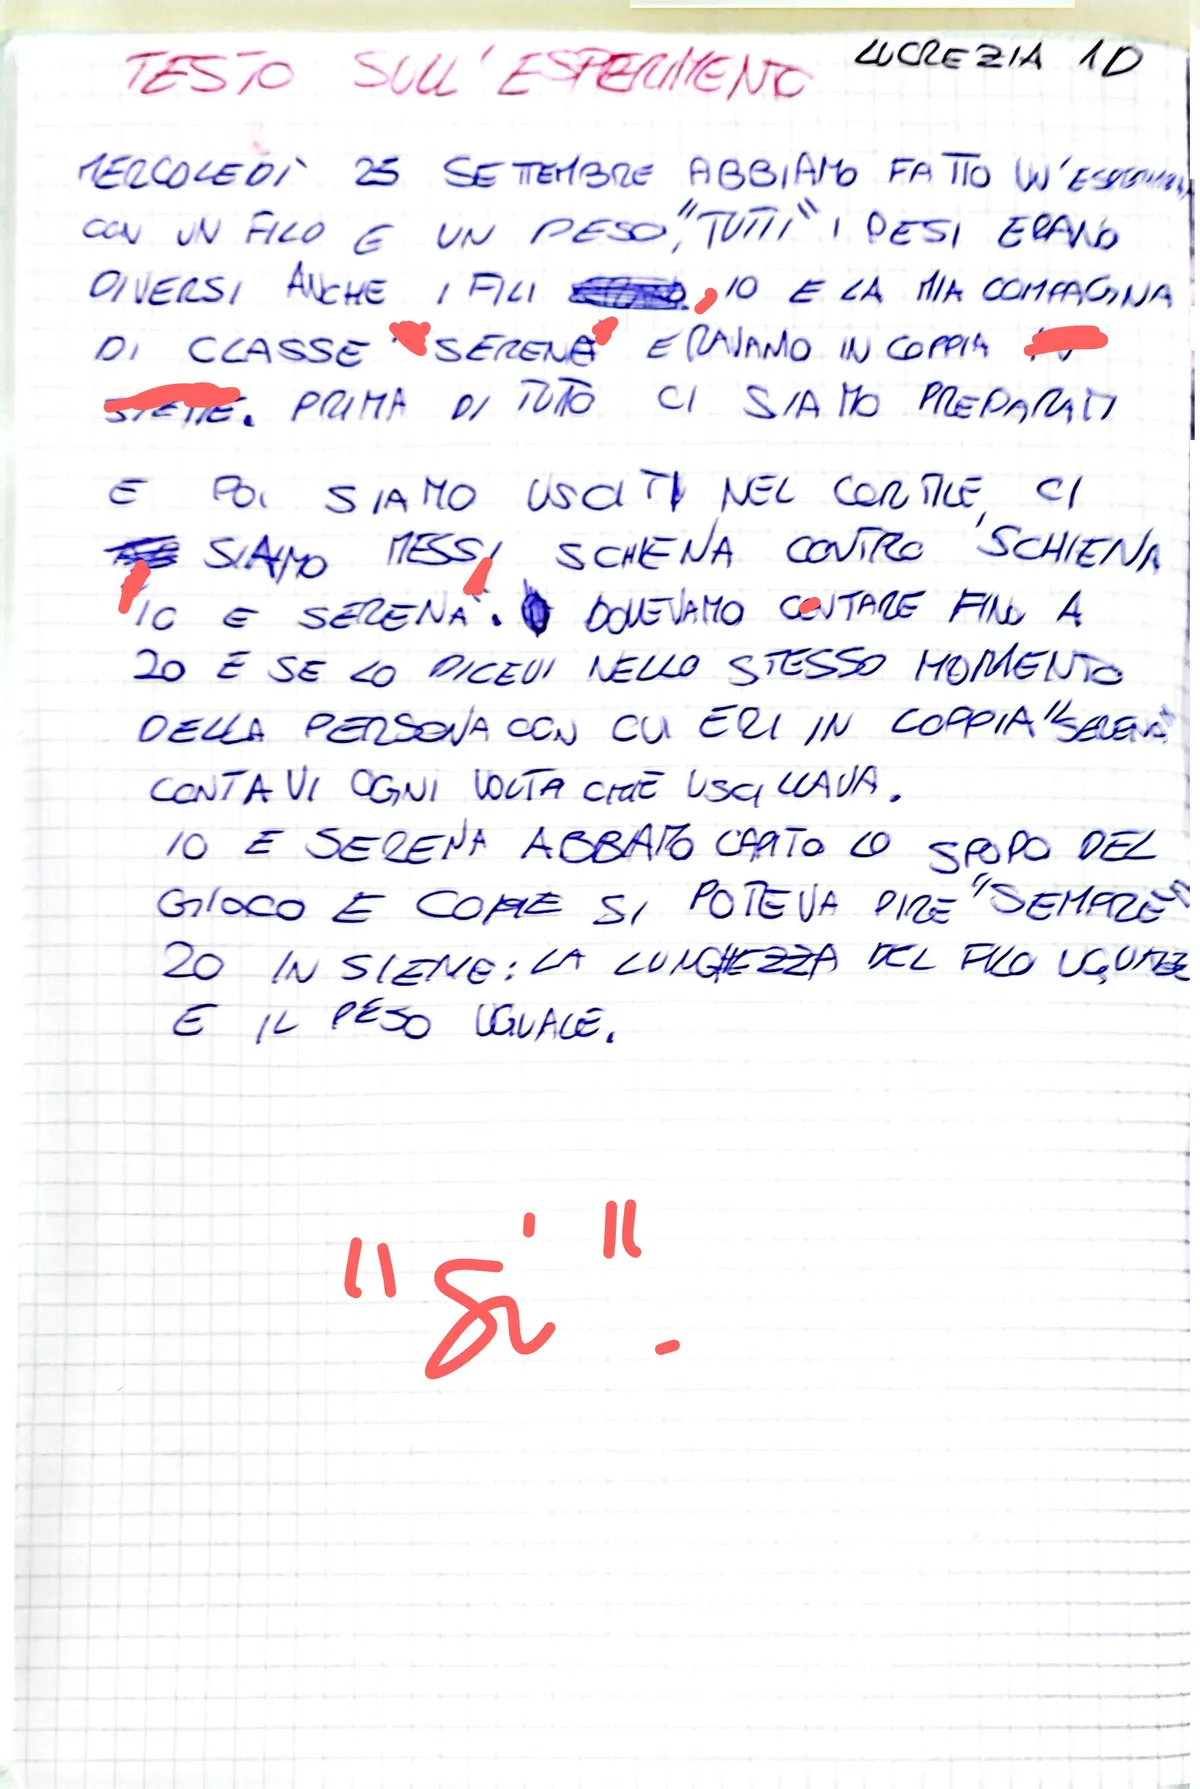 TESTO SULL'ESPERIMENTO LUCREZIA 1D
MERCOLEDÌ 25 SETTEMBRE ABBIAMO FATTO UN'ESPERIMENTO
CON UN FILO E UN PESO, "TUTTI" I PESI ERANO
DIVERSI ANCHE I FILI , IO E LA MIA COMPAGNA
DI CLASSE SERENA ERAVAMO IN COPPIA
. PRIMA DI TUTTO CI SIAMO PREPARATI
E POI SIAMO USCITI NEL CORTILE, CI
SIAMO MESSI SCHIENA CONTRO SCHIENA
IO E SERENA. DOVEVAMO CONTARE FINO A
20 E SE LO DICEVI NELLO STESSO MOMENTO
DELLA PERSONA CON CUI ERI IN COPPIA "SERENA"
CONTAVI OGNI VOLTA CHE USCILLAVA.
IO E SERENA ABBIAMO CAPITO LO SPOPO DEL
GIOCO E COME SI POTEVA DIRE "SEMPRE"
20 INSIEME: LA LUNGHEZZA DEL FILO UGUALE
E IL PESO UGUALE.
"Sì".